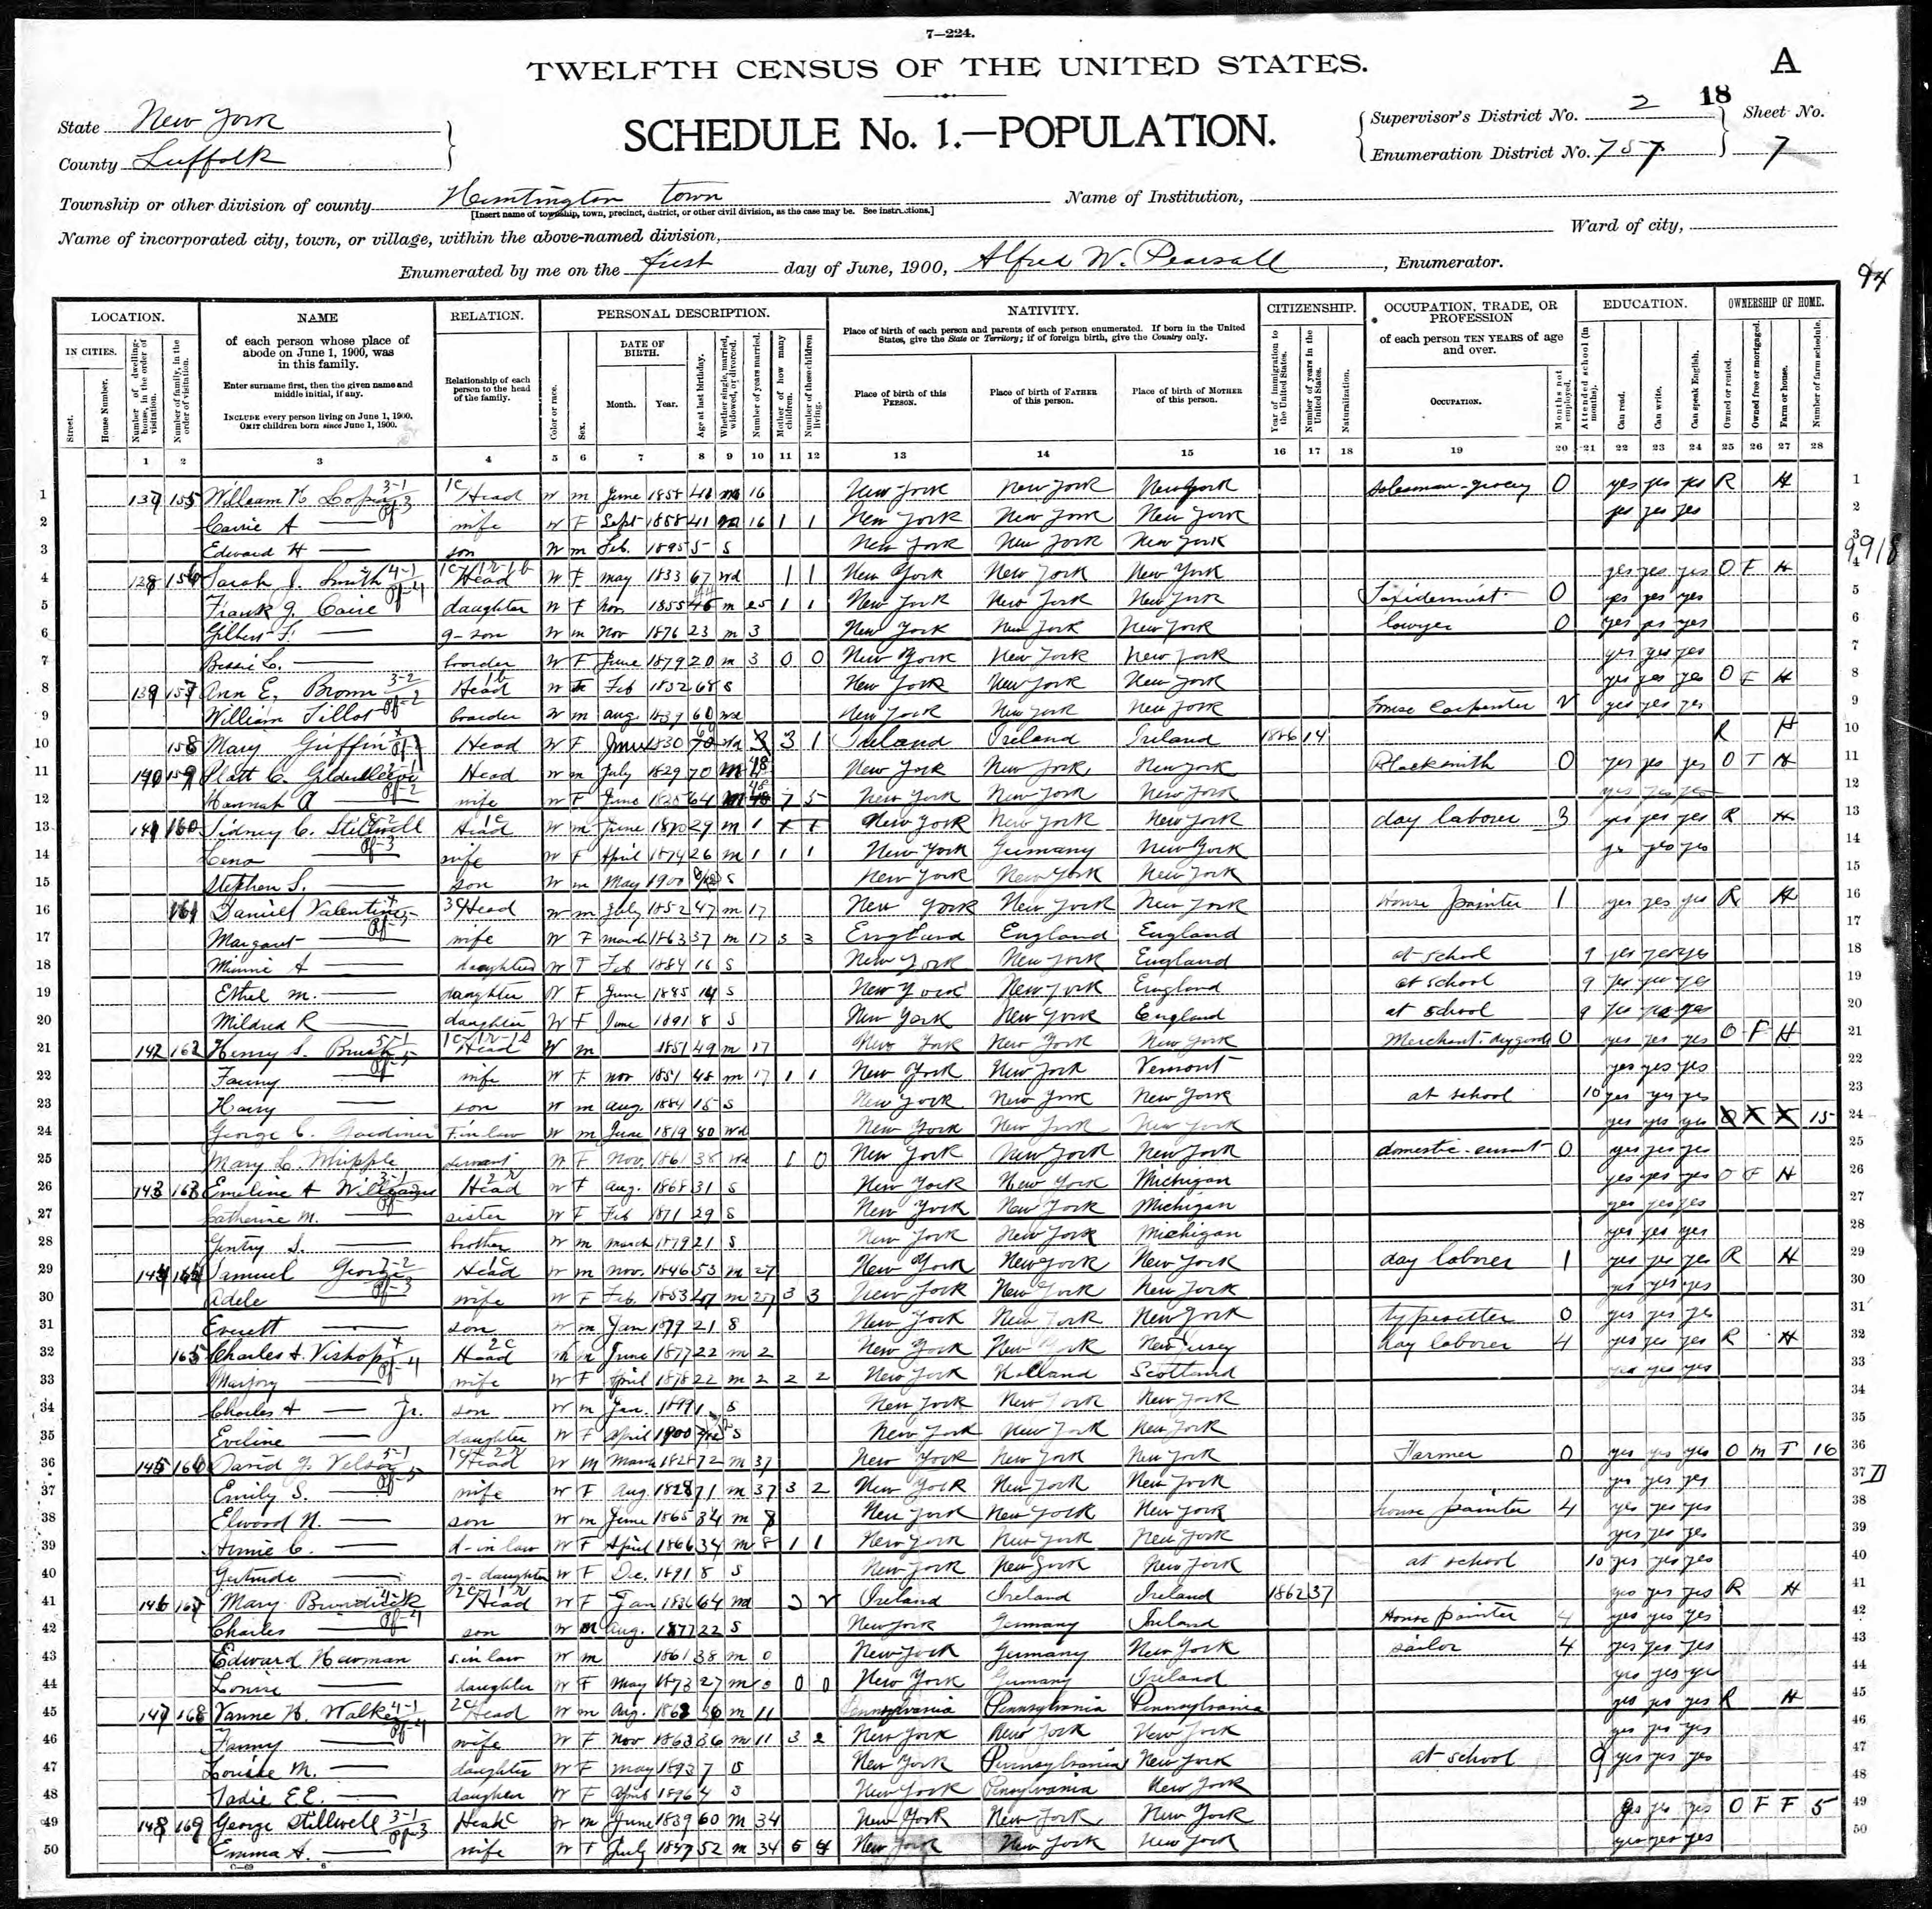 7—224.
TWELFTH CENSUS OF THE UNITED STATES.
A
State New York
County Suffolk
SCHEDULE No. 1.—POPULATION.
Supervisor's District No. 2
18 Sheet No.
Enumeration District No. 757
7
Township or other division of county Huntington town
Name of Institution,
[Insert name of township, town, precinct, district, or other civil division, as the case may be. See instructions.]
Name of incorporated city, town, or village, within the above-named division,
Ward of city,
Enumerated by me on the first day of June, 1900, Alfred W. Pearsall, Enumerator.
94
LOCATION. NAME RELATION. PERSONAL DESCRIPTION. NATIVITY. CITIZENSHIP. OCCUPATION, TRADE, OR PROFESSION EDUCATION. OWNERSHIP OF HOME.
IN CITIES. Street. House Number. Number of dwelling-house, in the order of visitation. Number of family, in the order of visitation.
of each person whose place of abode on June 1, 1900, was in this family.
Enter surname first, then the given name and middle initial, if any.
INCLUDE every person living on June 1, 1900. OMIT children born since June 1, 1900.
Relationship of each person to the head of the family.
Color or race. Sex. DATE OF BIRTH. Month. Year. Age at last birthday. Whether single, married, widowed, or divorced. Number of years married. Mother of how many children. Number of these children living.
Place of birth of each person and parents of each person enumerated. If born in the United States, give the State or Territory; if of foreign birth, give the Country only.
Place of birth of this PERSON. Place of birth of FATHER of this person. Place of birth of MOTHER of this person.
Year of immigration to the United States. Number of years in the United States. Naturalization.
of each person TEN YEARS of age and over.
OCCUPATION. Months not employed.
Attended school (in months). Can read. Can write. Can speak English.
Owned or rented. Owned free or mortgaged. Farm or house. Number of farm schedule.
1 2 3 4 5 6 7 8 9 10 11 12 13 14 15 16 17 18 19 20 21 22 23 24 25 26 27 28
1 155 William Head W m June 1858 41 m 16 New York New York New York salesman-grocery 0 yes yes yes R H 1
2 Carrie A wife W F Sept 1858 41 m 16 1 1 New York New York New York yes yes yes 2
3 Edward H son W m Feb. 1895 5 S New York New York New York 3
4 138 156 Sarah J. Smith Head W F may 1833 67 wd 1 1 New York New York New York yes yes yes O F H 4
5 Frank daughter W F nov 1855 m 25 1 1 New York New York New York Taxidermist 0 yes yes yes 5
6 Gilbert F. g-son W m Nov 1876 23 m 3 New York New York New York lawyer 0 yes yes yes 6
7 Bessie L. boarder W F June 1879 20 m 3 0 0 New York New York New York yes yes yes 7
8 139 157 Ann E. Brown Head W F Feb 1832 68 S New York New York New York yes yes yes O F H 8
9 William boarder W m aug 1839 60 wd New York New York New York house Carpenter yes yes yes 9
10 158 Mary Griffin Head W F 1830 wd 3 1 Ireland Ireland Ireland 1886 14 R H 10
11 140 159 Platt C. Head W m July 1829 70 m 48 New York New York New York Blacksmith 0 yes yes yes O F H 11
12 Hannah A wife W F June 1835 64 m 48 7 5 New York New York New York yes yes yes 12
13 141 160 Sidney C. Stillwell Head W m June 1870 29 m 1 New York New York New York day laborer 3 yes yes yes R H 13
14 Lena wife W F April 1874 26 m 1 1 1 New York Germany New York yes yes yes 14
15 Stephen S. son W m May 1900 S New York New York New York 15
16 161 Daniel Valentine Head W m July 1852 47 m 17 New York New York New York House painter 1 yes yes yes R H 16
17 Margaret wife W F march 1863 37 m 17 3 3 England England England 17
18 Minnie A daughter W F Feb 1884 16 S New York New York England at school 9 yes yes yes 18
19 Ethel m. daughter W F June 1885 14 S New York New York England at school 9 yes yes yes 19
20 Mildred R daughter W F June 1891 8 S New York New York England at school 9 yes yes yes 20
21 142 162 Henry S. Brush Head W m 1851 49 m 17 New York New York New York Merchant-drygoods 0 yes yes yes O F H 21
22 Fanny wife W F nov 1851 48 m 17 1 1 New York New York Vermont yes yes yes 22
23 Harry son W m aug. 1884 15 S New York New York New York at school 10 yes yes yes 23
24 George C. Gardiner F. in law W m June 1819 80 wd New York New York New York yes yes yes 15 24
25 Mary L. Whipple servant W F Nov. 1861 38 wd 1 0 New York New York New York domestic-servant 0 yes yes yes 25
26 143 163 Emeline A Head W F aug. 1868 31 S New York New York Michigan yes yes yes O F H 26
27 Catherine M. sister W F Feb 1871 29 S New York New York Michigan yes yes yes 27
28 S. brother W m march 1879 21 S New York New York Michigan yes yes yes 28
29 144 164 Samuel George Head W m nov. 1846 53 m 27 New York New York New York day laborer 1 yes yes yes R H 29
30 Adele wife W F Feb. 1853 47 m 27 3 3 New York New York New York yes yes yes 30
31 Everett son W m Jan 1879 21 S New York New York New York typesetter 0 yes yes yes 31
32 165 Charles A. Head W m June 1877 22 m 2 New York New York New Jersey day laborer 4 yes yes yes R H 32
33 Marjory wife W F April 1878 22 m 2 2 2 New York Holland Scotland yes yes yes 33
34 Charles A Jr. son W m Jan. 1899 1 S New York New York New York 34
35 Eveline daughter W F April 1900 S New York New York New York 35
36 145 166 David Head W m March 1828 72 m 37 New York New York New York Farmer 0 yes yes yes O m F 16 36
37 Emily S. wife W F Aug. 1828 71 m 37 3 2 New York New York New York yes yes yes 37
38 Elwood N. son W m June 1865 34 m 8 New York New York New York house painter 4 yes yes yes 38
39 Annie C. d-in law W F April 1866 34 m 8 1 1 New York New York New York yes yes yes 39
40 Gertrude g-daughter W F Dec. 1891 8 S New York New York New York at school 10 yes yes yes 40
41 146 167 Mary Head W F Jan 1836 64 wd Ireland Ireland Ireland 1862 37 yes yes yes R H 41
42 Charles son W m aug. 1877 22 S New York Germany Ireland House painter 4 yes yes yes 42
43 Edward s. in law W m 1861 38 m 0 New York Germany New York sailor 4 yes yes yes 43
44 Louise daughter W F May 1873 27 m 0 0 0 New York Germany Ireland yes yes yes 44
45 147 168 Vanne H. Walker Head W m Aug. 1863 36 m 11 Pennsylvania Pennsylvania Pennsylvania yes yes yes R H 45
46 Fanny wife W F nov 1863 36 m 11 3 2 New York New York New York yes yes yes 46
47 Louise M. daughter W F may 1893 7 S New York Pennsylvania New York at school 9 yes yes yes 47
48 Sadie E.E. daughter W F April 1896 4 S New York Pennsylvania New York 48
49 148 169 George Stillwell Head W m June 1839 60 m 34 New York New York New York yes yes yes O F F 5 49
50 Emma A. wife W F July 1847 52 m 34 5 4 New York New York New York yes yes yes 50